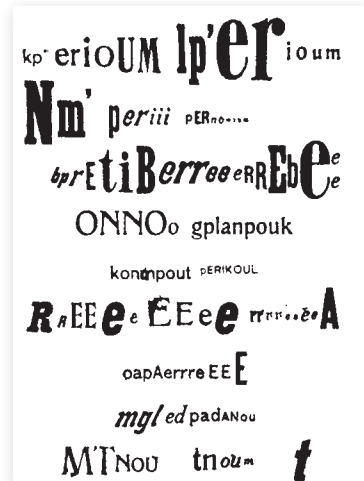 kp'erioUM lp'er ioum
Nm' periii pERnoumu
bprEtiBerreeeRREbeee
ONNOo gplanpouk
konmpout pERIKOUL
RAEEeeEEee rrrreeeeA
oapAerrreEEE
mgl ed padANou
MTNou tnoum t